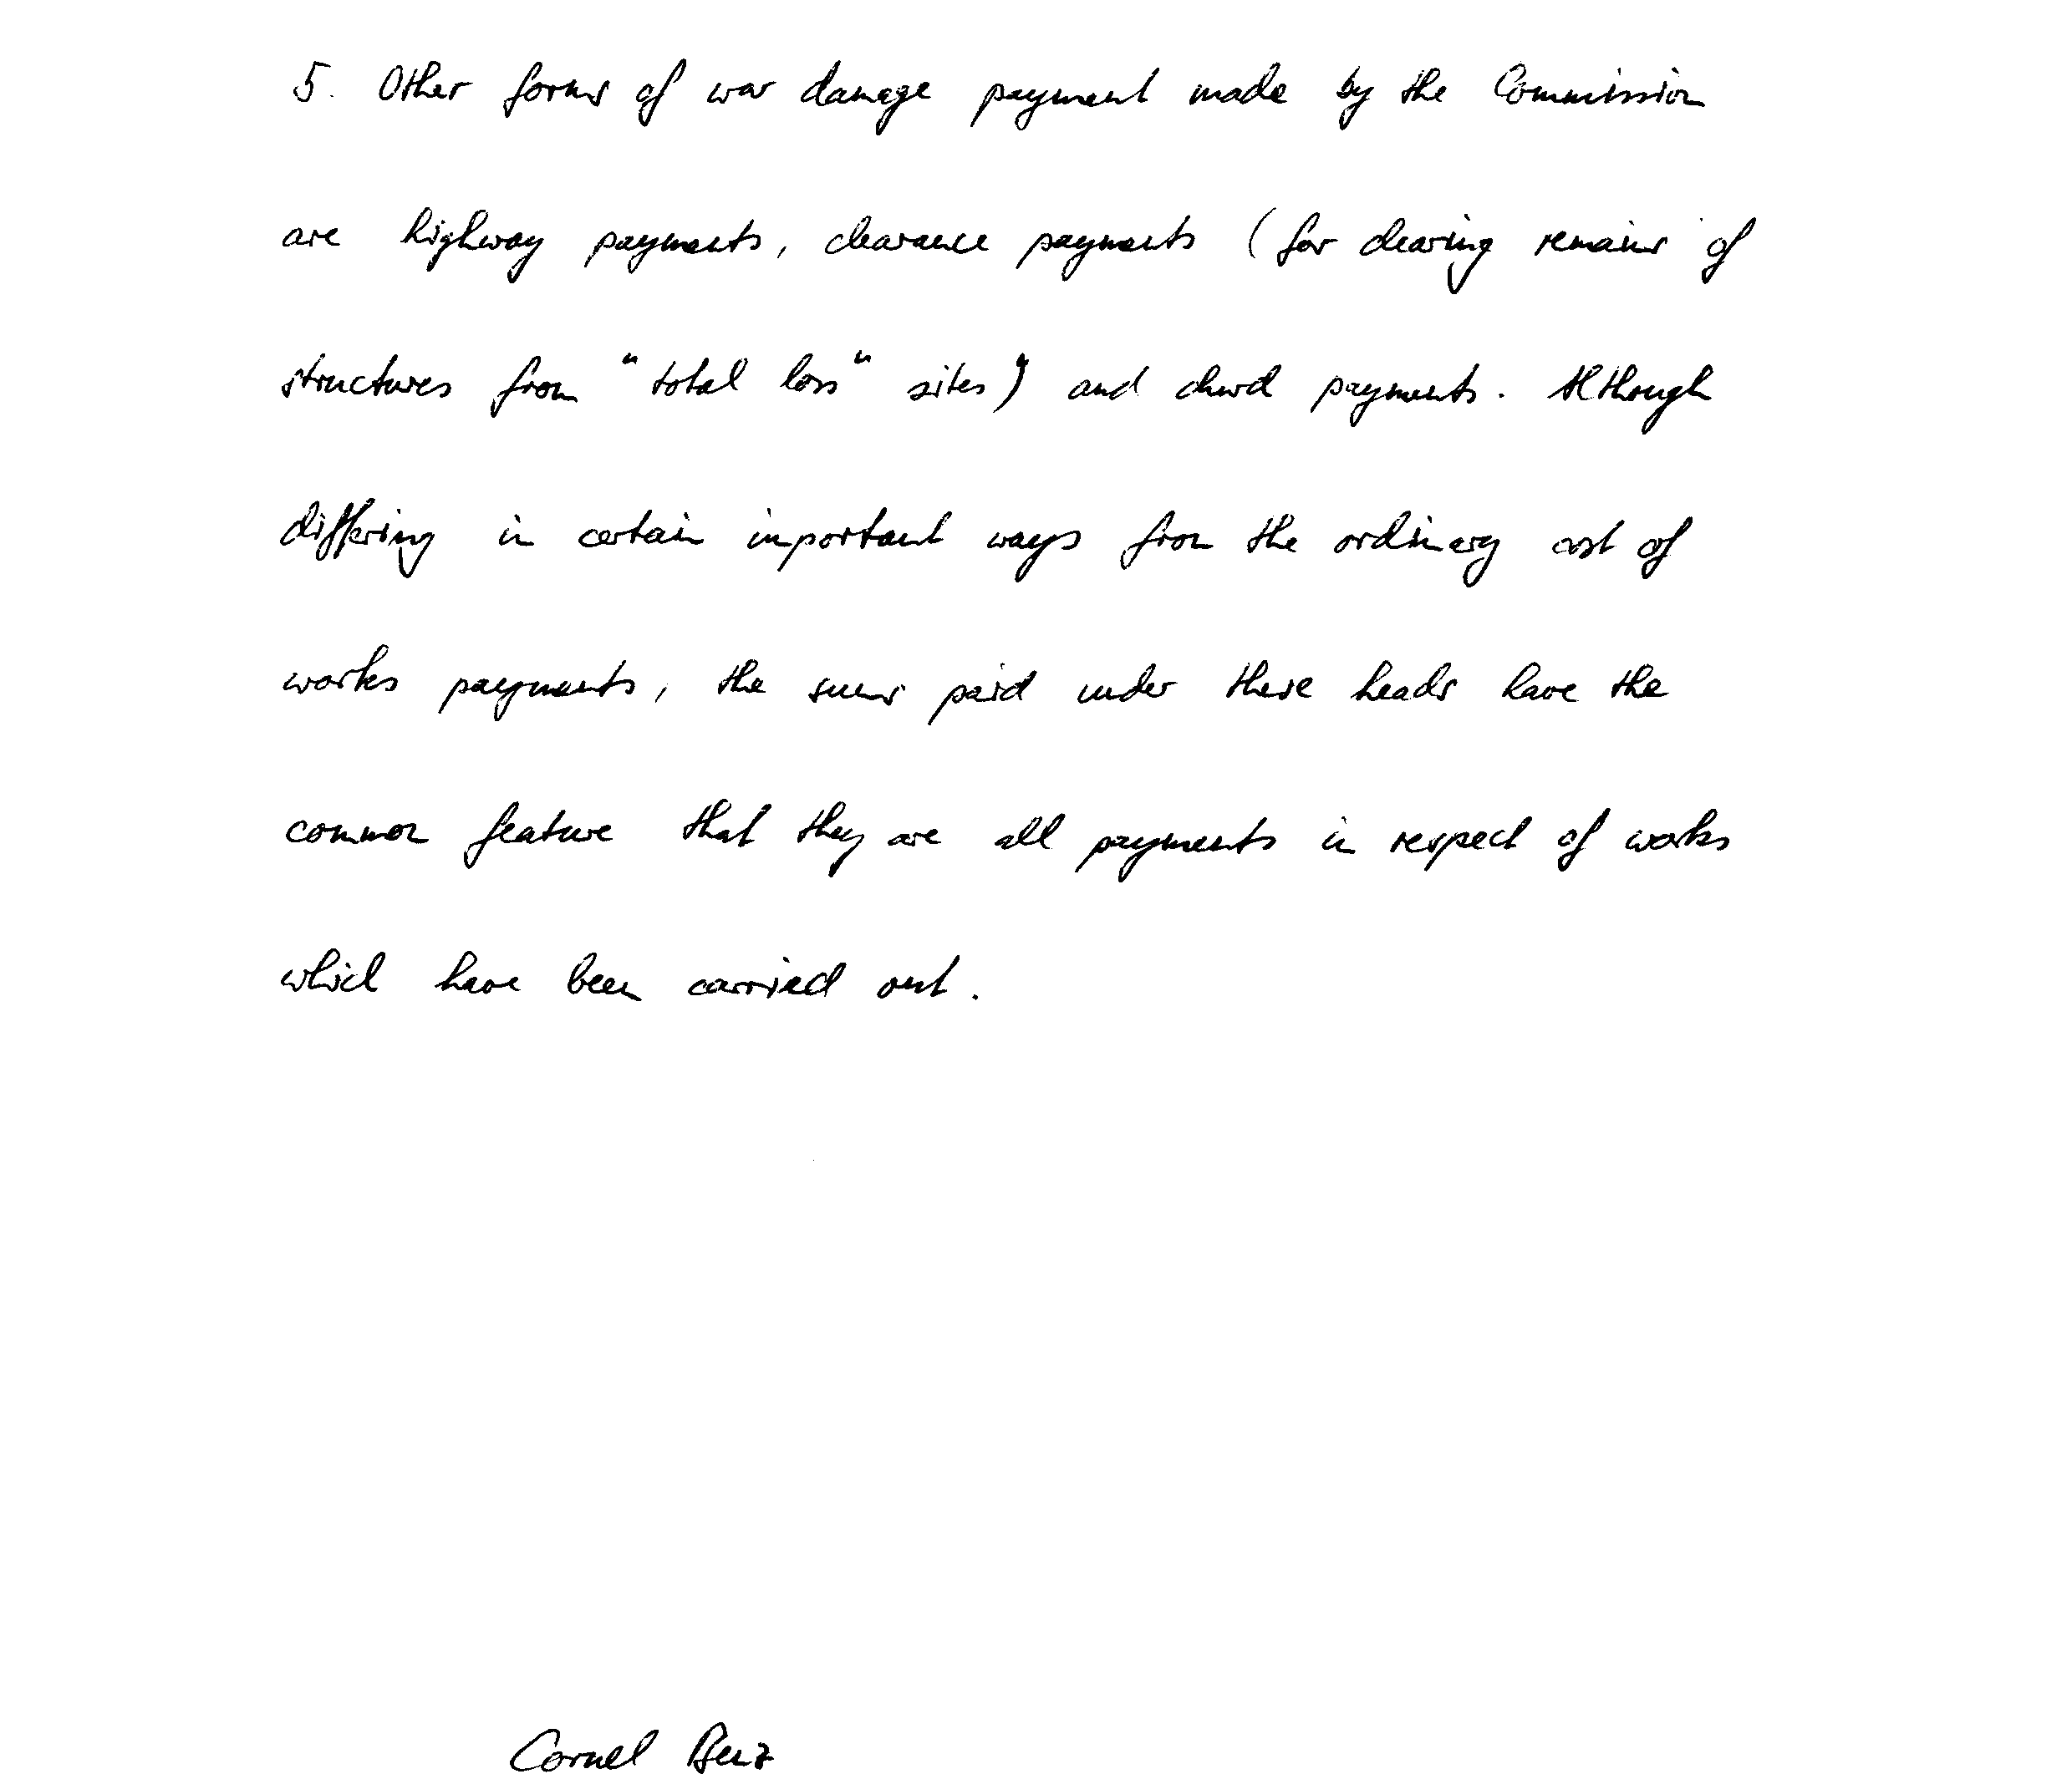 5. Other forms of war damage payment made by the Commission
are highway payments, clearance payments (for clearing remains of
structures from "total loss" sites) and church payments. Although
differing in certain important ways from the ordinary cost of
works payments, the sums paid under these heads have the
common feature that they are all payments in respect of works
which have been carried out.
Cornel